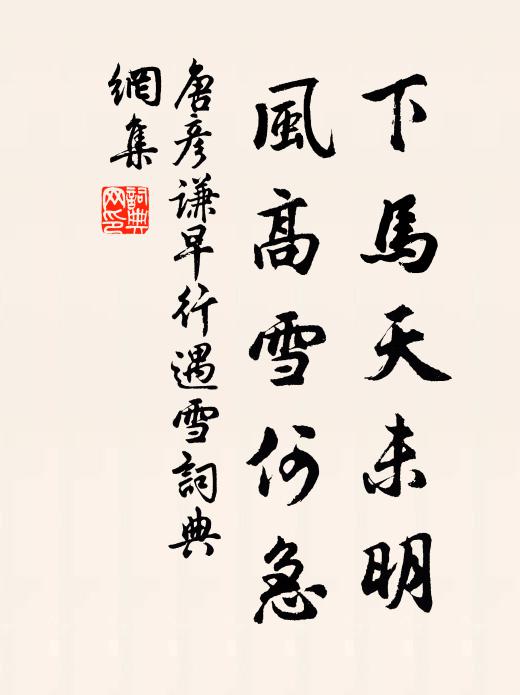 下馬天未明
風高雪何急
唐彥謙早行遇雪詞典
網集
詞典
网印